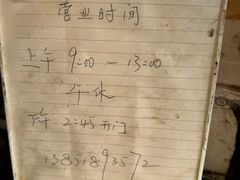 营业时间
上午 9:00 — 13:00
午休
下午 2:45 开门
13851893572